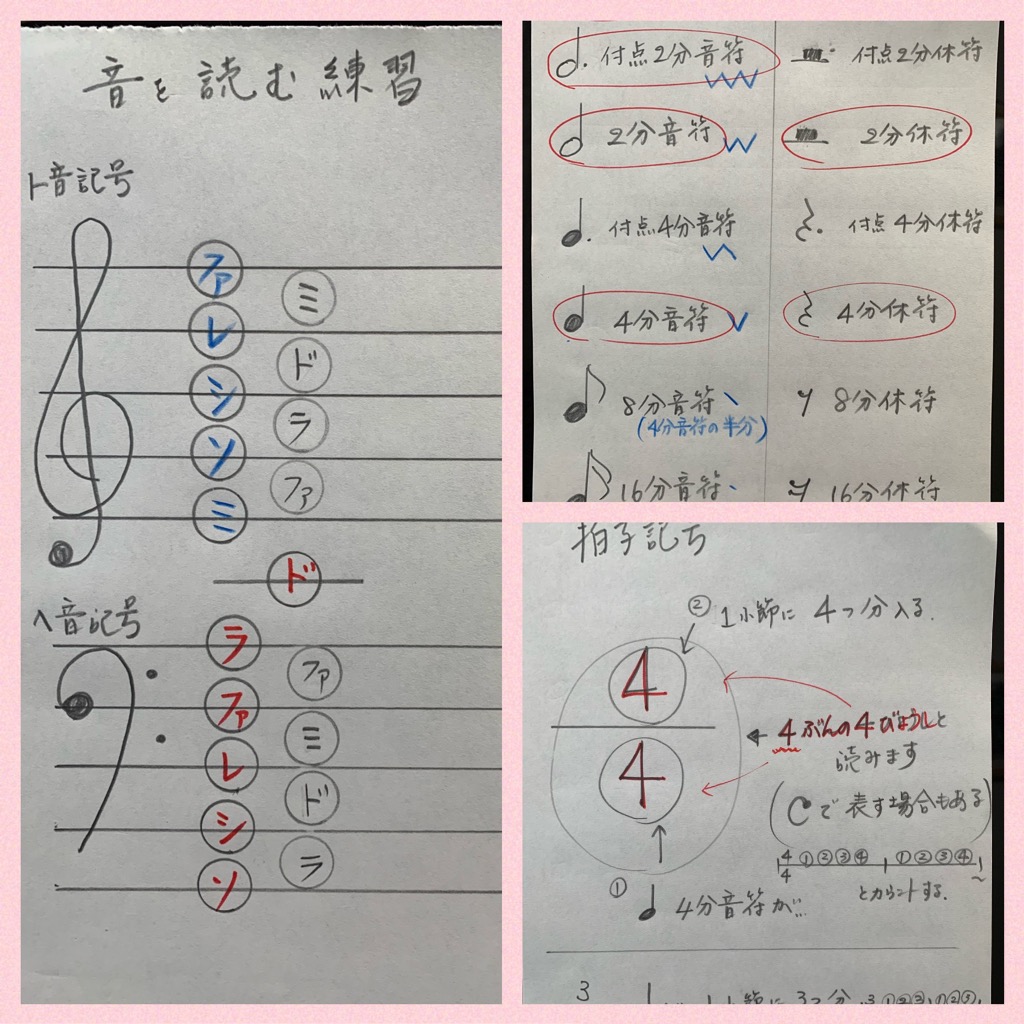 音を読む練習
ト音記号
ファ
ミ
レ
ド
シ
ラ
ソ
ファ
ミ
ド
ヘ音記号
ラ
ファ
ファ
ミ
レ
ド
シ
ラ
ソ
付点2分音符 付点2分休符
2分音符 2分休符
付点4分音符 付点4分休符
4分音符 4分休符
8分音符 8分休符
(4分音符の半分)
16分音符 16分休符
拍子記号
② 1小節に 4つ分入る.
4
4
4ぶんの4びょうしと
読みます
(Cで表す場合もある)
4/4 ①②③④ ①②③④
とカウントする.
①
4分音符が…
3 1小節に3つ分